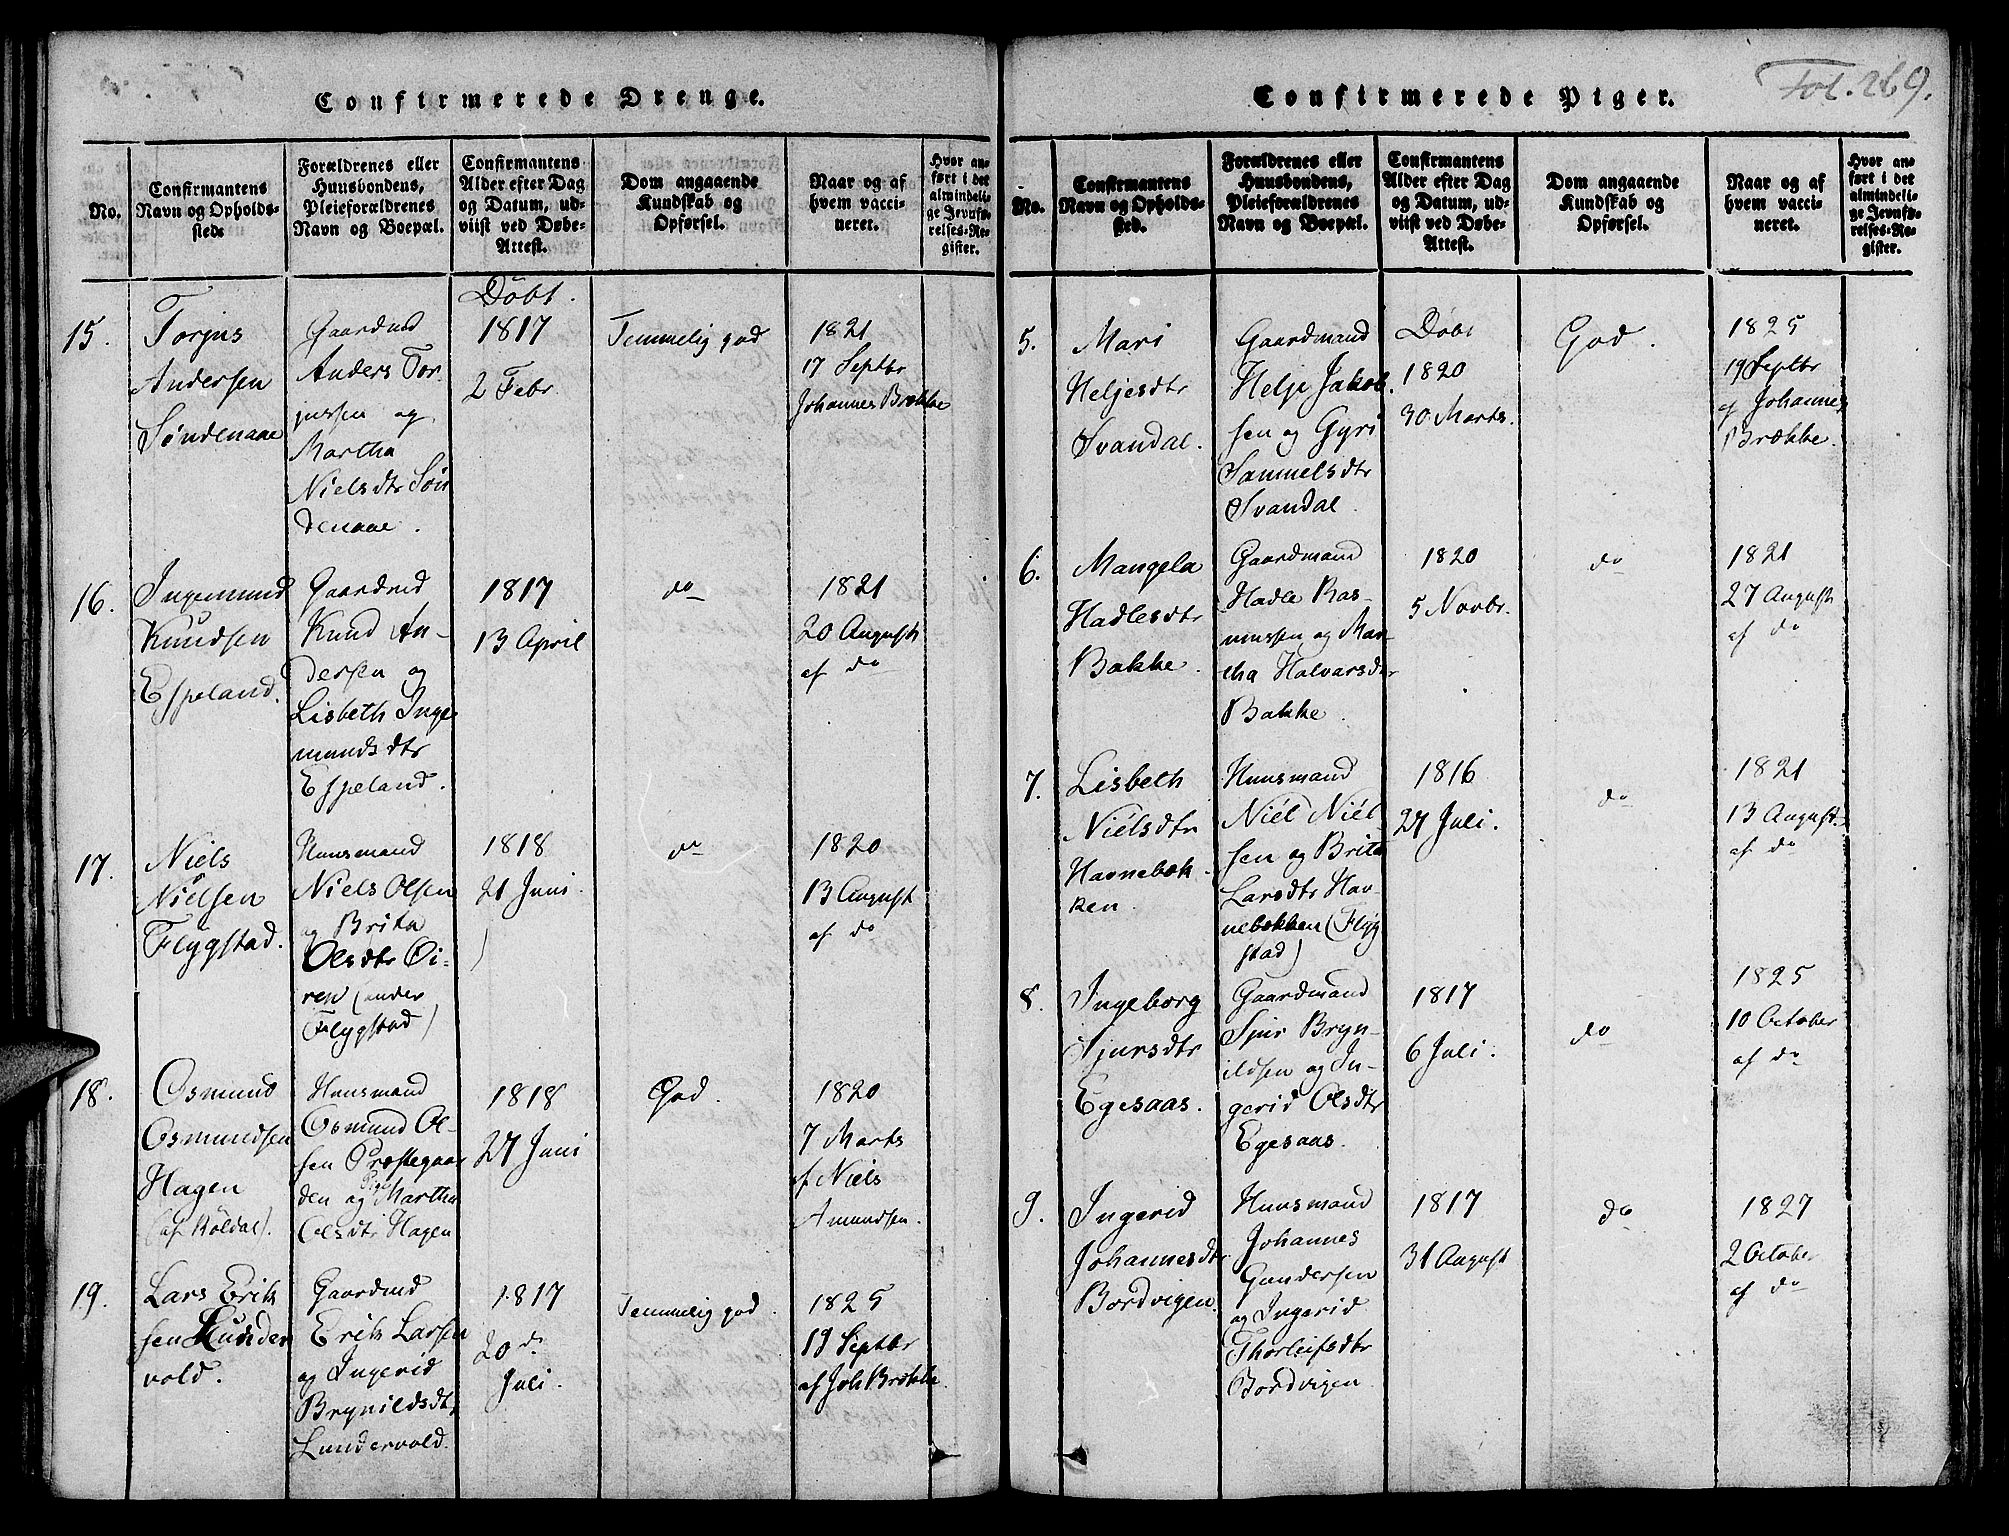 Confirmerede Drenge.
No.
Confirmantens
Navn og Opholds-
stede
Forældrenes eller
Huusbondens,
Pleieforældrenes
Navn og Boepæl.
Confirmantens
Alder efter Dag
og Datum, ud-
viist ved Døbe-
Attest.
Dom angaaende
Kundskab og
Opførsel.
Naar og af
hvem vacci-
neret.
Hvor an-
ført i det
almindeli-
ge Jevnfø-
relses-Re-
gister.
15.
Torjus
Andersen
Søndenaae
Gaardmd
Anders Tor-
jussen og
Martha
Nielsdtr Søn
denaae.
Døbt.
1817
2 Febr.
Temmelig god
1821
17 Septbr
Johannes Brække
16.
Ingemund
Knudsen
Espeland.
Gaardmd
Knud An-
dersen og
Lisbeth Inge
mundsdtr
Espeland.
1817
13 April
do
1821
20 August
af do
17.
Niels
Nielsen
Flygstad.
Huusmand
Niels Olsen
og Brita
Olsdtr Öi-
ren (under
Flygstad)
1818
21 Juni.
do
1820
13 August
af do
18.
Osmund
Osmundsen
Hagen
(af Röldal).
Huusmand
Osmund Ol-
sen Præstegaar
den og Pige Martha
Olsdtr Hagen
1818
27 Juni
God.
1820
7 Marts
af Niels
Amundsen.
19.
Lars Erik
sen Lunder
vold.
Gaardmd
Erik Larsen
og Ingerid
Brynildsdtr
Lundervold.
1817
20 d.
Juli.
Temmelig god.
1825
19 Septbr
af Joh Brække
Confirmerede Piger.
Fol. 269.
No.
Confirmantens
Navn og Opholds-
sted.
Forældrenes eller
Huusbondens,
Pleieforældrenes
Navn og Boepæl.
Confirmantens
Alder efter Dag
og Datum, ud-
viist ved Døbe-
Attest.
Dom angaaende
Kundskab og
Opførsel.
Naar og af
hvem vacci-
neret.
Hvor an-
ført i det
almindeli-
ge Jevnfø-
relses-Re-
gister.
5.
Mari
Heljesdtr
Svandal.
Gaardmand
Helje Jakob
sen og Gyri
Samuelsdtr
Svandal.
Døbt
1820
30 Marts.
God.
1825
19 Septbr
af Johannes
Brække.
6.
Mangela
Hadlesdtr
Bakke.
Gaardmand
Hadle Ras-
mussen og Mar-
tha Halvarsdtr
Bakke.
1820
5 Novbr.
do
1821
27 August
af do
7.
Lisbeth
Nielsdtr
Havnebæk
ken.
Huusmand
Niel Niel-
sen og Brita
Larsdtr Hav-
nebækken (Flyg
stad)
1816
27 Juli.
do
1821
13 August.
af do
8.
Ingeborg
Sjursdtr
Egesaas.
Gaardmand
Sjur Bryn-
ildsen og In-
gerid Olsdtr
Egesaas.
1817
6 Juli.
do
1825
10 October
af do
9.
Ingerid
Johannesdtr
Bordvigen.
Huusmand
Johannes
Gundersen
og Ingerid
Thorleifsdtr
Bordvigen
1817
31 August
do
1827
2 October
af do